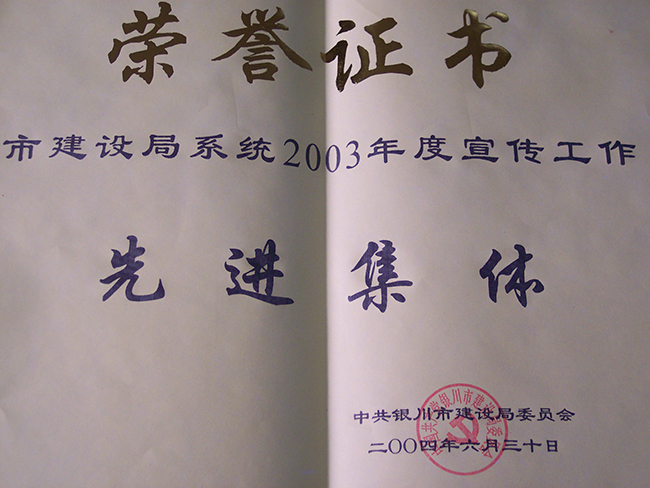 荣誉证书
市建设局系统2003年度宣传工作
先进集体
中共银川市建设局委员会
二〇〇四年六月三十日
中国共产党银川市建设局委员会